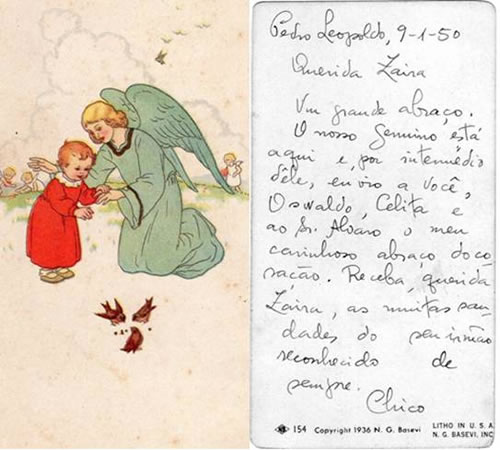 Pedro Leopoldo, 9-1-50
Querida Zaira
Um grande abraço.
O nosso Genuino está
aqui e, por intermédio
dêle, envio a você,
Oswaldo, Celita e
ao Sr. Alvaro o meu
carinhoso abraço do co
ração. Receba, querida
Zaira, as muitas sau-
dades do seu irmão
reconhecido de
sempre.
Chico
154 Copyright 1936 N. G. Basevi
LITHO IN U. S. A.
N. G. BASEVI, INC